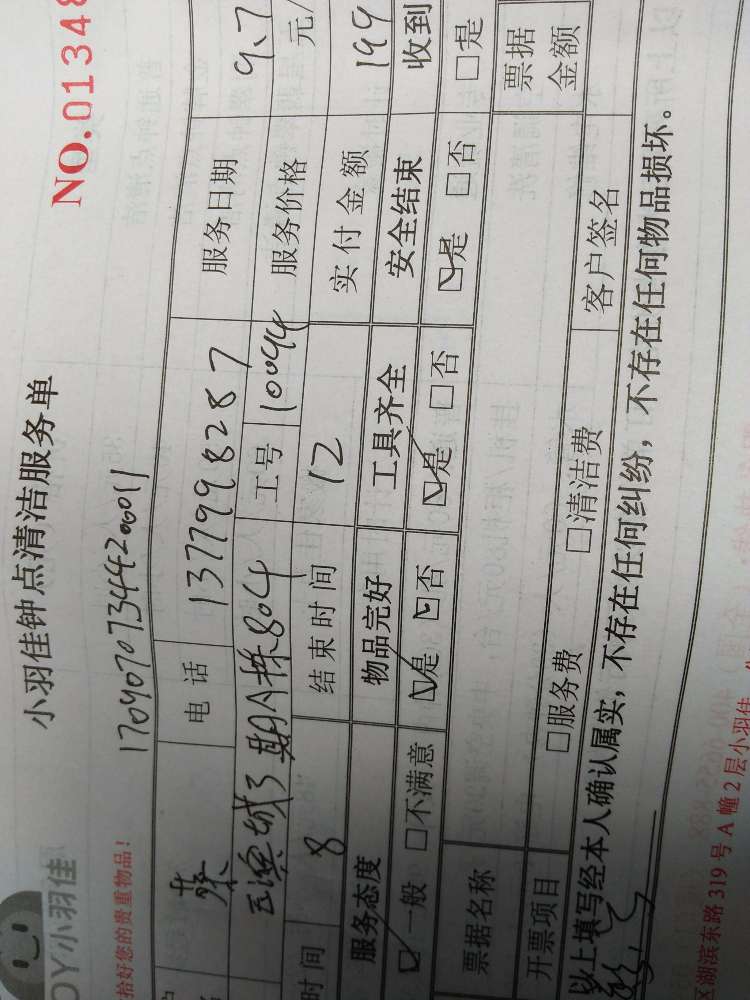 小羽佳钟点清洁服务单
NO.01348
OY小羽佳
拾好您的贵重物品！
17090707344200011
蔡 电话 1377998287 服务日期 9.7
3期A栋804 工号 10094 服务价格 元/
时间 8 结束时间 12 实付金额 199
服务态度 物品完好 工具齐全 安全结束 收到
☑一般 □不满意 ☑是 ☑否 ☑是 □否 ☑是 □否 □是
票据名称 票据金额
开票项目 □服务费 □清洁费 客户签名
以上填写经本人确认属实，不存在任何纠纷，不存在任何物品损坏。
区湖滨东路319号A幢2层小羽佳